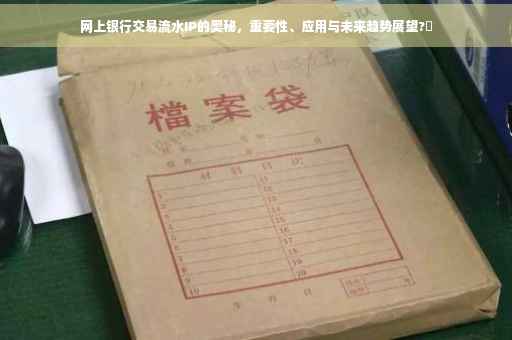 网上银行交易流水IP的奥秘，重要性、应用与未来趋势展望?
檔案袋
材料目次
1 11
2 12
3 13
4 14
5 15
6 16
7 17
8 18
9 19
10 20
年 月 日